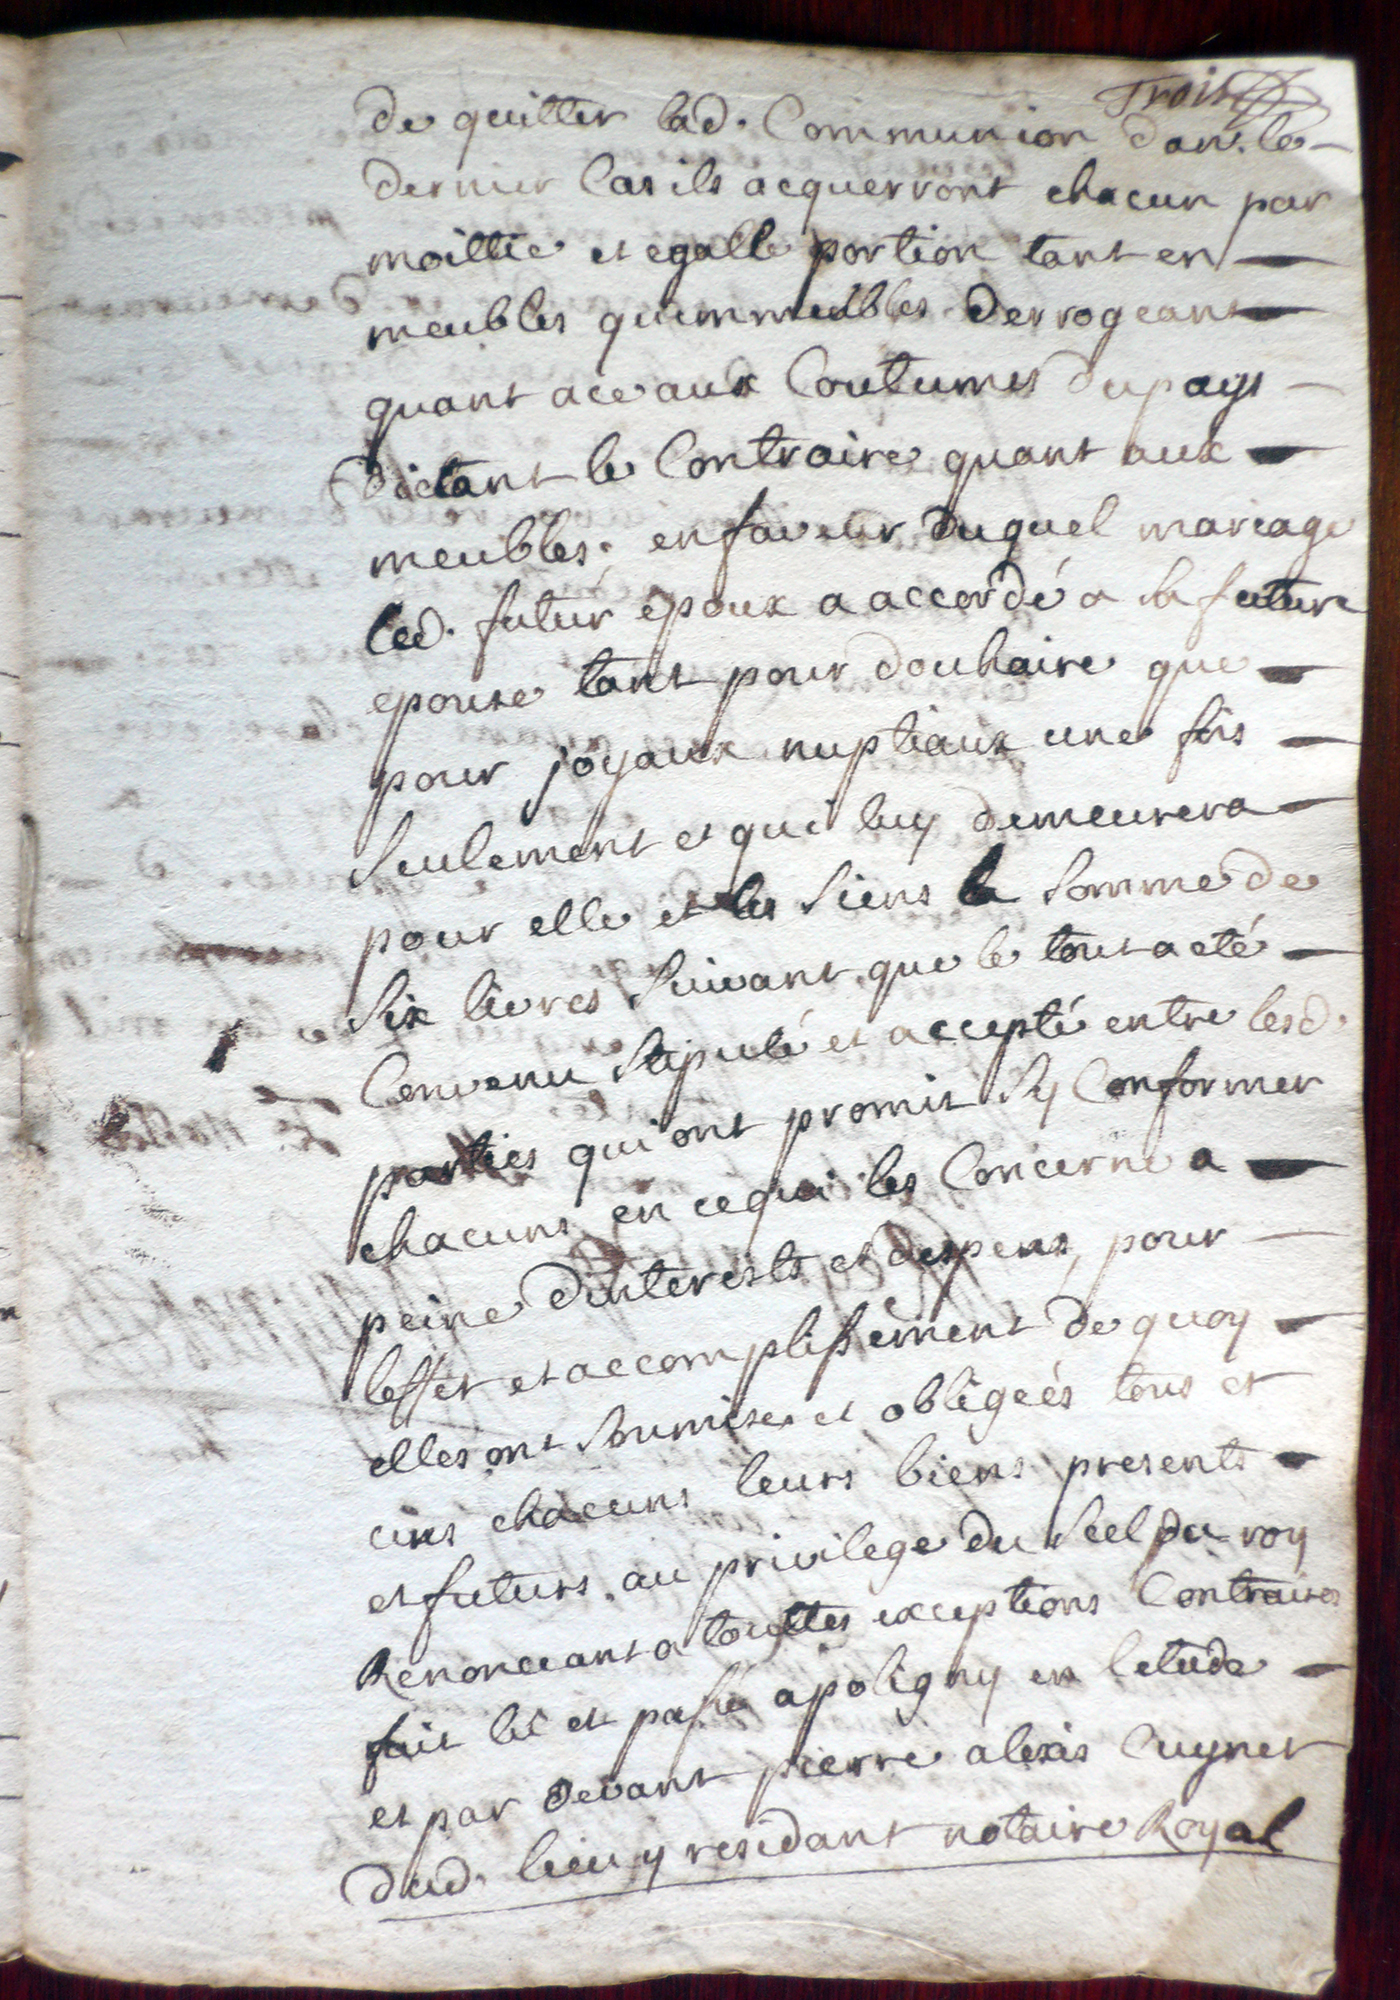 Trois
de quitter lad. Communion dans le
dernier Cas ils acquerront chacun par
moittie et egalle portion tant en
meubles quimmeubles. derrogeant
quant a ce aux Coutumes du pays
dictant le Contraire quant aux
meubles. en faveur duquel mariage
led. futur epoux a accordé a la future
epouse tant pour douhaire que
pour joyaux nuptiaux une fois
seulement et qui luy demeurera
pour elle et les siens la somme de
six livres suivant que le tout a eté
Convenu stipulé et accepté entre lesd.
parties qui ont promis sy Conformer
chacuns en ce qui les Concerne a
peine dinterests et despens, pour
leffet et accomplissement de quoy
elles ont soumises et obligeés tous et
uns chacuns leurs biens presents
et futurs. au privilege du scel du roy
Renoncant a touttes exceptions Contraires
fait lû et passé a poligny en letude
et par devant pierre alexis Cuynet
dud. lieu y residant notaire Royal